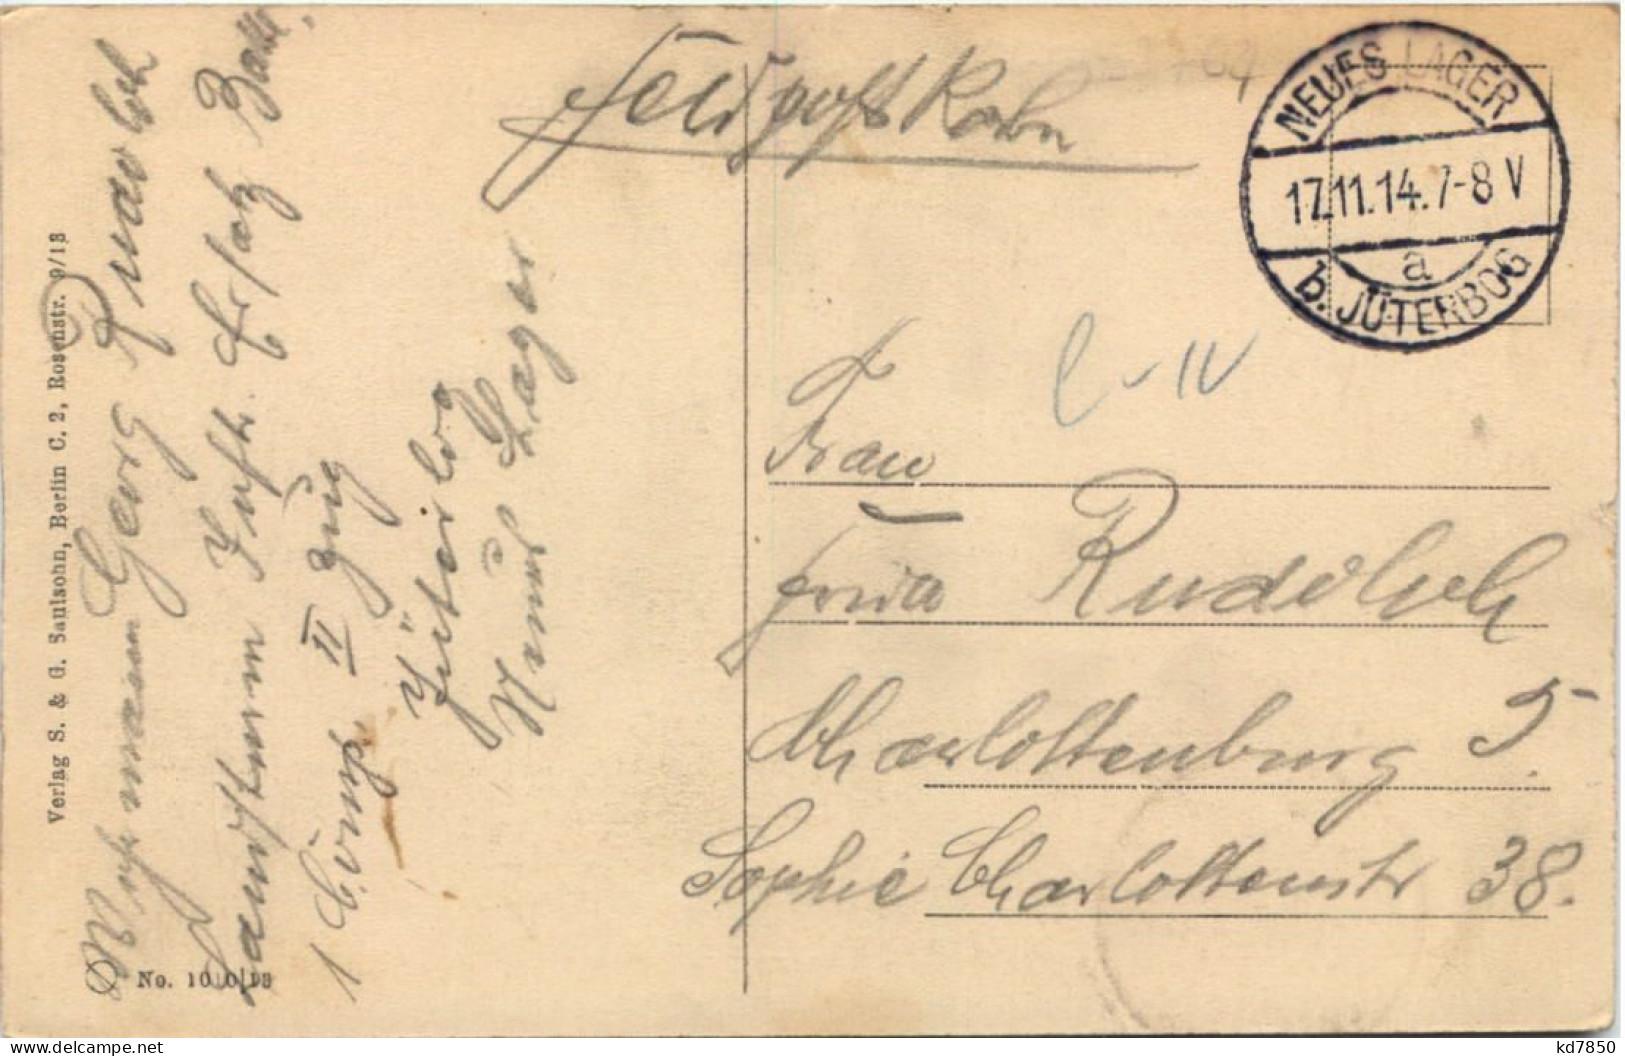 Feldpostkarte
NEUES LAGER
17.11.14. 7-8 V
a
b. JÜTERBOG
C-IV
Frau
Frida Rudolph
Charlottenburg 5.
Sophie Charlottenstr 38.
Georg Rudolph
Landsturm Inft. Ersatz Batl.
1 Comp. II Zug
Jüterbog
Neues Lager
Verlag S. & G. Saulsohn, Berlin C. 2, Rosenstr. 9/13
No. 1010/13
kd7850